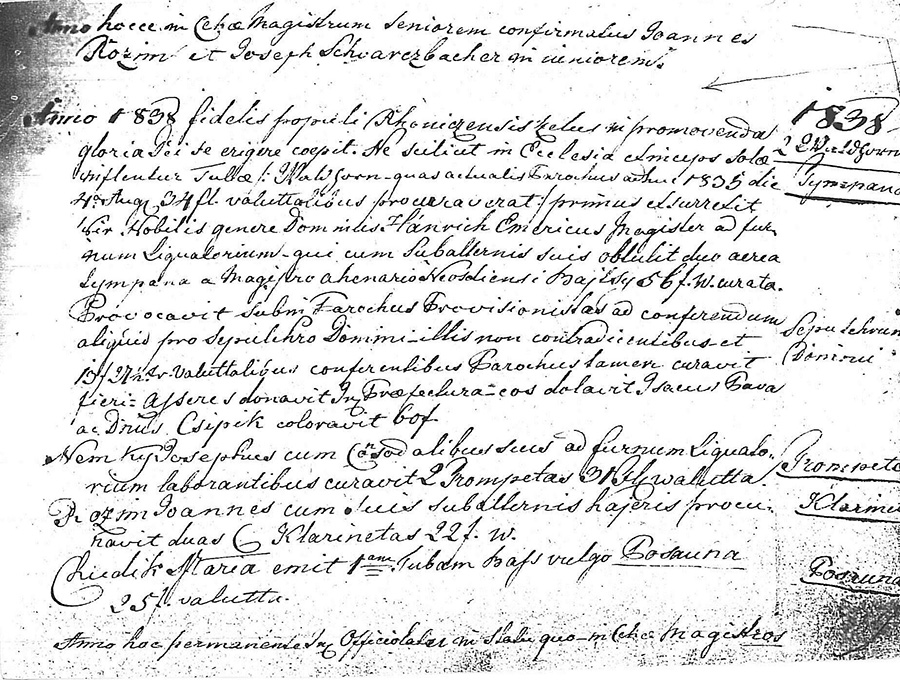 Anno hocce in Cehæ Magistrum Seniorem confirmatus Joannes
Rozim et Joseph Schwarczbacher in iuniorem.
Anno 1838 fidelis populi Rhonicensis zelus in promovenda
gloria Dei se erigere coepit. Ne scilicet in Ecclesia Solæ
inflentur Tubæ /: Waldhorn - quas actualis Parochus adhuc 1835 die
4ta Aug 34 fl. valuttalibus procuraverat :/ primus exsurrexit
Vir Nobilis genere Dominus Hánrich Emericus Magister ad fur-
num Liquatorium - qui cum Subalternis suis obtulit duo aerea
Tympana a Magistro ahenario Neosoliensi 56 f. W. curata.
Provocavit subin Parochus Provisionistas ad conferendum
aliquid pro Sepulchro Domini - illis non contradicentibus - et
valuttalibus conferentibus Parochus tamen curavit
fieri = Asseres donavit Præfectura - eos dolavit Isacus Pava
ac Dnus. Csipik coloravit 60 f.
Nemky Josephus cum Consodalibus suis ad furnum Liquato-
rium laborantibus curavit 2 Trompetas 31 f. Walutta
Rozim Joannes cum suis subalternis hajeris procu-
ravit duas C Klarinetas 22 f. W.
Chudik Maria emit 1am Tubam Bass vulgo Posauna
25 f. valutta.
Anno hoc permanente in Statu quo - in Cehæ Magistros
1838
2 Waldhorn
Tympana
Sepulchrum
Domini
Trompete
Klarinet
Posauna